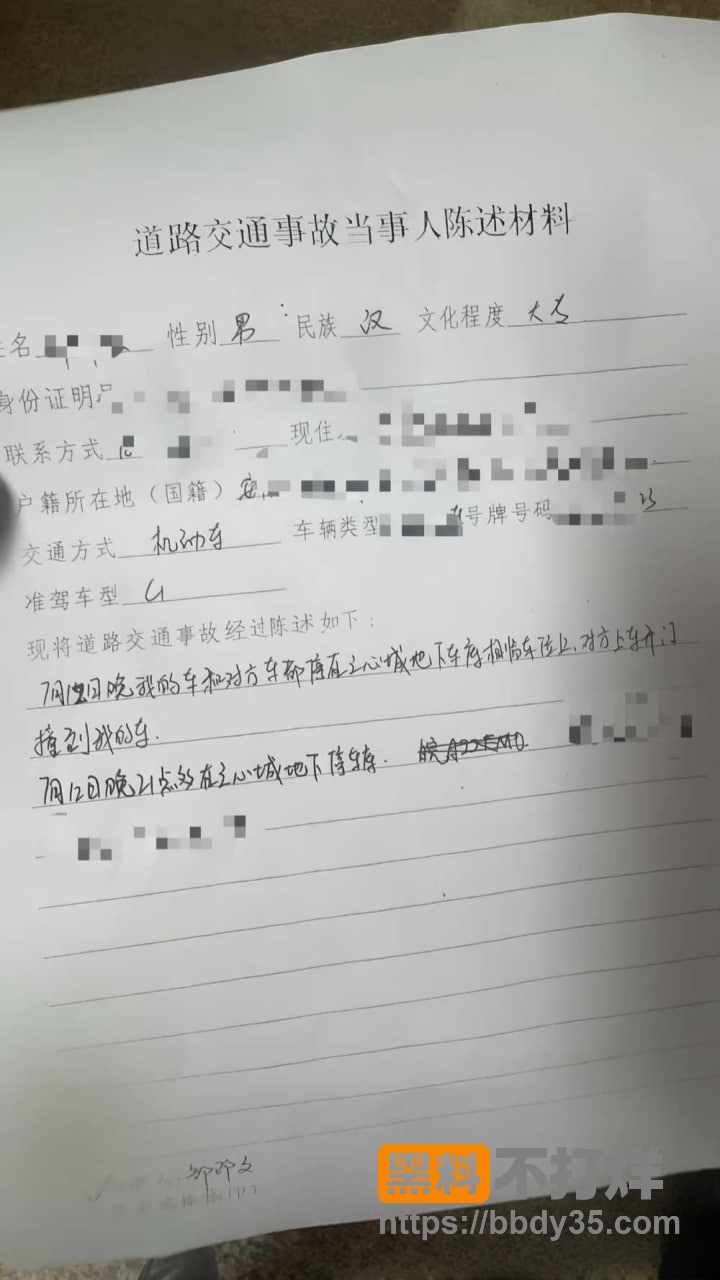 道路交通事故当事人陈述材料
姓名 性别 男 民族 汉 文化程度 大专
身份证明
联系方式 现住
户籍所在地（国籍） 安
交通方式 机动车 车辆类型 号牌号码
准驾车型 C1
现将道路交通事故经过陈述如下：
7月12日晚我的车和对方车都停在之心城地下车库相临车位上，对方上车开门
撞到我的车.
7月12日晚21点多在之心城地下停车库.
黑料不打烊
https://bbdy35.com